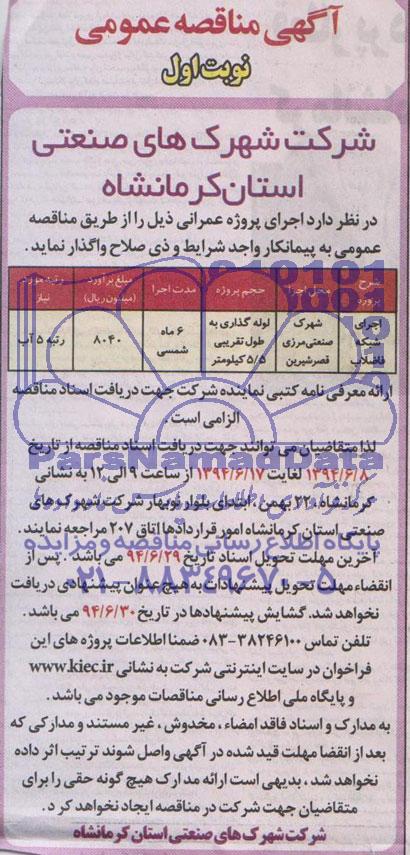 آگهی مناقصه عمومی
نوبت اول
شرکت شهرک های صنعتی
استان کرمانشاه
در نظر دارد اجرای پروژه عمرانی ذیل را از طریق مناقصه
عمومی به پیمانکار واجد شرایط و ذی صلاح واگذار نماید.
شرح پروژه محل اجرا حجم پروژه مدت اجرا مبلغ برآورد (میلیون ریال) رتبه مورد نیاز
اجرای شهرک لوله گذاری به ۶ ماه ۸۰۴۰ رتبه ۵ آب
شبکه صنعتی مرزی طول تقریبی شمسی
فاضلاب قصرشیرین ۵/۵ کیلومتر
ارائه معرفی نامه کتبی نماینده شرکت جهت دریافت اسناد مناقصه
الزامی است.
لذا متقاضیان می توانند جهت دریافت اسناد مناقصه از تاریخ
۱۳۹۴/۶/۸ لغایت ۱۳۹۴/۶/۱۷ از ساعت ۹ الی ۱۲ به نشانی
کرمانشاه، ۲۲ بهمن، ابتدای بلوار نوبهار شرکت شهرک های
صنعتی استان کرمانشاه امور قراردادها اتاق ۲۰۷ مراجعه نمایند.
آخرین مهلت تحویل اسناد تاریخ ۹۴/۶/۲۹ می باشد. پس از
انقضاء مهلت تحویل پیشنهادات به هیچ عنوان پیشنهادی دریافت
نخواهد شد. گشایش پیشنهادها در تاریخ ۹۴/۶/۳۰ می باشد.
تلفن تماس ۳۸۲۴۶۱۰۰-۰۸۳ ضمنا اطلاعات پروژه های این
فراخوان در سایت اینترنتی شرکت به نشانی www.kiec.ir
و پایگاه ملی اطلاع رسانی مناقصات موجود می باشد.
به مدارک و اسناد فاقد امضاء، مخدوش، غیر مستند و مدارکی که
بعد از انقضا مهلت قید شده در آگهی واصل شوند ترتیب اثر داده
نخواهد شد، بدیهی است ارائه مدارک هیچ گونه حقی را برای
متقاضیان جهت شرکت در مناقصه ایجاد نخواهد کرد.
شرکت شهرک های صنعتی استان کرمانشاه
ParsNamadData
پایگاه اطلاع رسانی مناقصه و مزایده
۰۲۱-۸۸۳۴۹۶۷۰-۵